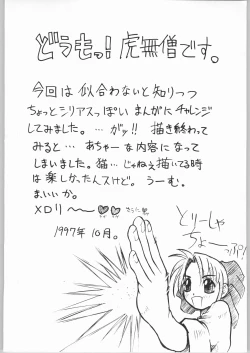 どうもっ!虎無僧です。
今回は似合わないと知りつつ
ちょっとシリアスっぽいまんがにチャレンジ
してみました。…がッ!!描き終わって
みると…あちゃーな内容になって
しまいました。猫…じゃねえ描いてる時
は楽しかったんスけど。うーむ。
まいいか。
メロリ〜〜
1997年10月。
とりーしゃ
ちょーっぷ!